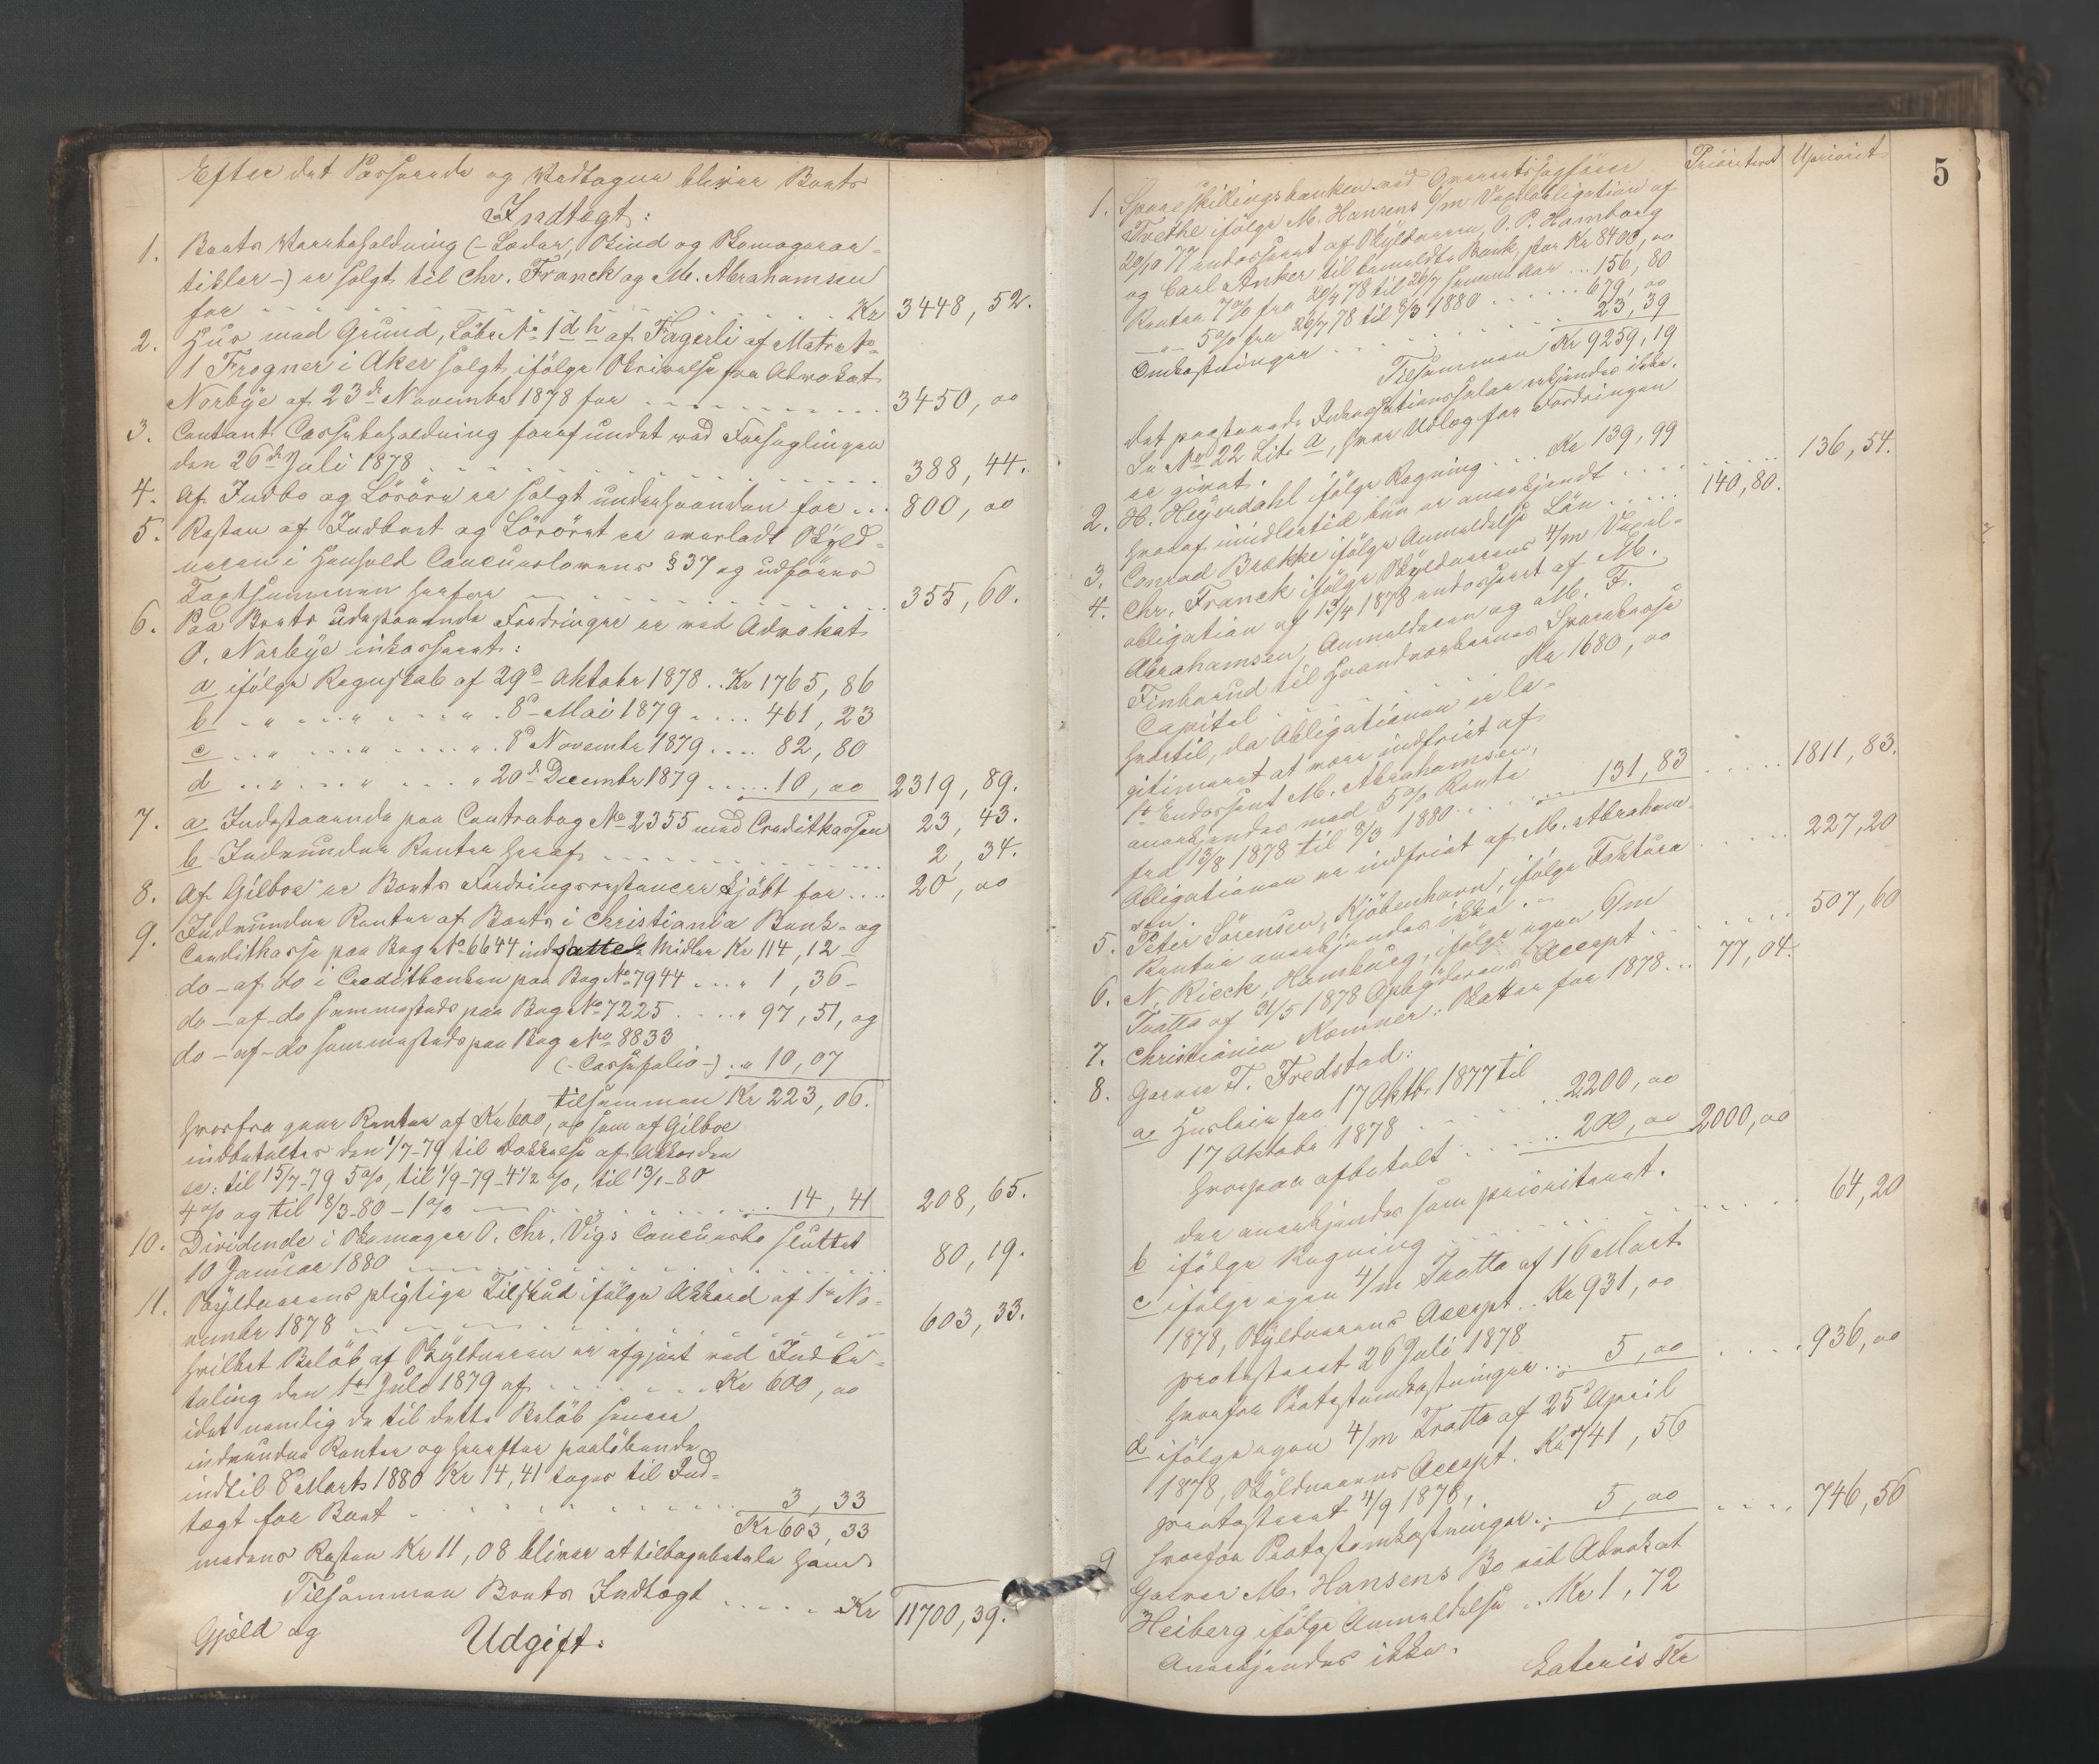 Efter det Passerede og Vedtagne bliver Boets
Indtægt:
1. Boets Varebeholdning (-Læder, Skind og Skomagerar-
tikler-) er solgt til Chr. Franck og M. Abrahamsen
for . . . Kr 3448, 52.
2. Huus med Grund, Löbe No 1 d h af Fagerli af Matr. No
1 Frogner i Aker solgt ifölge Skrivelse fra Advokat
Norbye af 23de November 1878 for . . . 3450, 00
3. Contant Cassebeholdning forefundet ved Forseglingen
den 26de Juli 1878 . . . 388, 44.
4. Af Indbo og Lösöre er solgt underhaanden for . . . 800, 00
5. Resten af Indboet og Lösöret er overladt Skyld-
neren i Henhold Concurslovens § 37 og udföres
Taxtsummen herfor . . . 355, 60.
6. Paa Boets udestaaende Fordringer er ved Advokat
O. Norbye inkasseret:
a ifölge Regnskab af 29de Oktobr 1878 . . Kr 1765, 86
b - " - " - " 8de Mai 1879 . . . 461, 23
c - " - " - " 8de Novembr 1879 . . . 82, 80
d - " - " - " 20de Decembr 1879 . . . 10, 00 2319, 89.
7. a Indestaaende paa Contrabog No 2355 med Creditkassen 23, 43.
b Indvundne Renter heraf . . . 2, 34.
8. Af Gilboe er Boets Fordringsrestancer kjöbt for . . . 20, 00
9. Indvundne Renter af Boets i Christiania Bank- og
Creditkasse paa Bog No 6644 indsatte Midler Kr 114, 12 -
do - af do i Creditbanken paa Bog No 7944 . . . " 1, 36 -
do - af - do sammesteds paa Bog No 7225 . . . " 97, 51, og
do - af - do sammesteds paa Bog No 8833
(-Cassefolio-) . " 10, 07
tilsammen Kr 223, 06.
hvorfra gaar Renter af Kr 600, 00 som af Gilboe
indbetaltes den 1/7-79 til Dækkelse af Akkorden
sc: til 15/7-79 5 %, til 1/9-79 - 4 1/2 %, til 13/1-80
4 % og til 8/3-80 - 1 % . . . 14, 41 208, 65.
10. Dividende i Skomager O. Chr. Vigs Concursbo sluttet
10 Januar 1880 . . . 80, 19.
11. Skyldnerens pligtige Tilskud ifölge Akkord af 1ste No-
vember 1878 . . . 603, 33.
hvilket Belöb af Skyldneren er afgjort ved Indbe-
taling den 1ste Juli 1879 af . . . Kr 600, 00
idet nemlig de til dette Belöb senere
indvundne Renter og herefter paalöbende
indtil 8de Marts 1880 Kr 14, 41 tages til Ind-
tægt for Boet . . . 3, 33
Kr 603, 33
medens Resten Kr 11, 08 bliver at tilbagebetale ham
Tilsammen Boets Indtægt . . . Kr 11700, 39.
Gjæld og Udgift:
Prioriteret Uprioriet
5
1. Spareskillingsbanken ved Overretssagförer
Trethe ifölge M. Hansens 6/m Vexelobligation af
20/10 77 endosseret af Skyldneren, O. P. Hamborg
og Carl Anker til bemeldte Bank, stor Kr 8400, 00
Renter 7 % fra 20/4 78 til 26/7 samme Aar . . . 156, 80
- " - 5 % fra 26/7 78 til 8/3 1880 . . . 679, 00
Omkostninger . . . 23, 39
Tilsammen Kr 9259, 19
Det paastaaede Inkassationssalær erkjendes ikke.
Se No 22 Lit. a, hvor Udlæg for Fordringen
er givet.
2. H. Heyerdahl ifölge Regning . . . Kr 139, 99
hvoraf imidlertid kun er anerkjendt . . . 136, 54.
3. Conrad Brække ifölge Anmeldelse Lön . . . 140, 80.
4. Chr. Franck ifölge Skyldnerens 4/m Vexel-
obligation af 13/4 1878 endosseret af M.
Abrahamsen, Anmelderen og M. F.
Finborud til Haandværkernes Sparekasse
Capital . . . Kr 1680, 00
hvortil, da Obligationen er le-
gitimeret at være indfriet af
1ste Endossent M. Abrahamsen,
anerkjendes med 5 % Rente
fra 13/8 1878 til 8/3 1880 . . . 131, 83 . . . 1811, 83.
Obligationen er indfriet af M. Abraham-
sen.
5. Peter Sörensen, Kjöbenhavn, ifölge Faktura . . . 227, 20
Renter anerkjendes ikke. -
6. N. Rieck, Hamburg, ifölge egen 6/m
Tratte af 31/5 1878 Opbyderens Accept . . . 507, 60
7. Christiania Kæmner: Skatter for 1878 . . . 77, 04.
8. Garver T. Fredstad:
a Husleie fra 17 Oktb. 1877 til
17 Oktober 1878 . . . 2200, 00
hvorpaa afbetalt . . . 200, 00 2000, 00
der anerkjendes som prioriteret.
b ifölge Regning . . . 64, 20
c ifölge egen 4/m Tratte af 16 Marts
1878, Skyldnerens Accept . . Kr 931, 00
protesteret 26 Juli 1878
hvorfor Protestomkostninger . . . 5, 00 . . . 936, 00
d ifölge egen 4/m Tratte af 25de April
1878, Skyldnerens Accept . Kr 741, 56
protesteret 4/9 1878,
hvorfor Protestomkostninger . . . 5, 00 . . . 746, 56
9 Garver M. Hansens Bo ved Advokat
Heiberg ifölge Anmeldelse . . Kr 1, 72
Anerkjendes ikke.
Lateris Kr